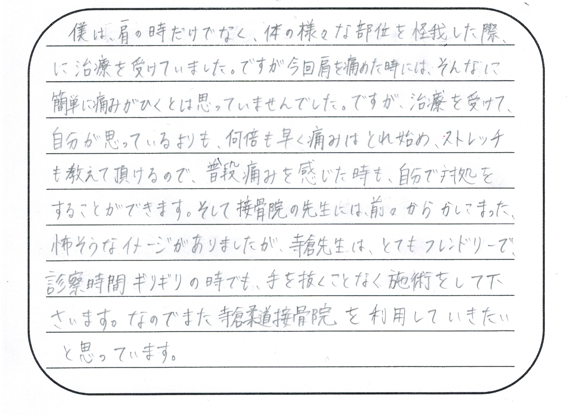 僕は、肩の時だけでなく、体の様々な部位を怪我した際、
に治療を受けていました。ですが今回肩を痛めた時には、そんなに
簡単に痛みがひくとは思っていませんでした。ですが、治療を受けて、
自分が思っているよりも、何倍も早く痛みはとれ始め、ストレッチ
も教えて頂けるので、普段痛みを感じた時も、自分で対処を
することができます。そして接骨院の先生には、前々からかしこまった、
怖そうなイメージがありましたが、寺倉先生は、とてもフレンドリーで、
診察時間ギリギリの時でも、手を抜くことなく施術をして下
さいます。なのでまた寺倉柔道接骨院を利用していきたい
と思っています。